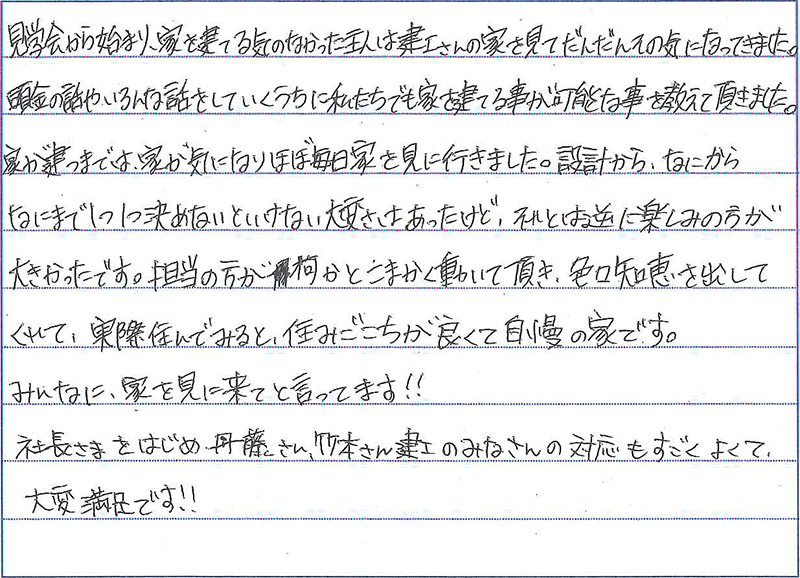 見学会から始まり、家を建てる気のなかった主人は建工さんの家を見てだんだんその気になってきました。
頭金の話やいろんな話をしていくうちに私たちでも家を建てる事が可能な事を教えて頂きました。
家が建つまでは、家が気になりほぼ毎日家を見に行きました。設計から、なにから
なにまで1つ1つ決めないといけない大変さはあったけど、それとは逆に楽しみの方が
大きかったです。担当の方が何かとこまかく動いて頂き、色々知恵を出して
くれて、実際住んでみると、住みごこちが良くて自慢の家です。
みんなに、家を見に来てと言ってます!!
社長さまをはじめ丹藤さん、竹本さん建工のみなさんの対応もすごくよくて、
大変満足です!!